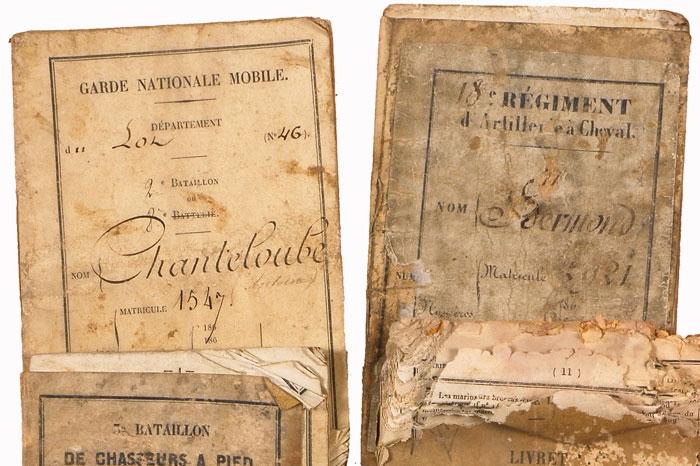 GARDE NATIONALE MOBILE.
DÉPARTEMENT
du Lot (No 46)
2e BATAILLON
ou
8e BATTERIE
NOM Chanteloube
Antoine
MATRICULE 1547
186
186
3e BATAILLON
DE CHASSEURS A PIED
18e RÉGIMENT
d'Artillerie à Cheval.
NOM Bermond
Matricule 2021
186
Numéros
( 11 )
Les marins
LIVRET